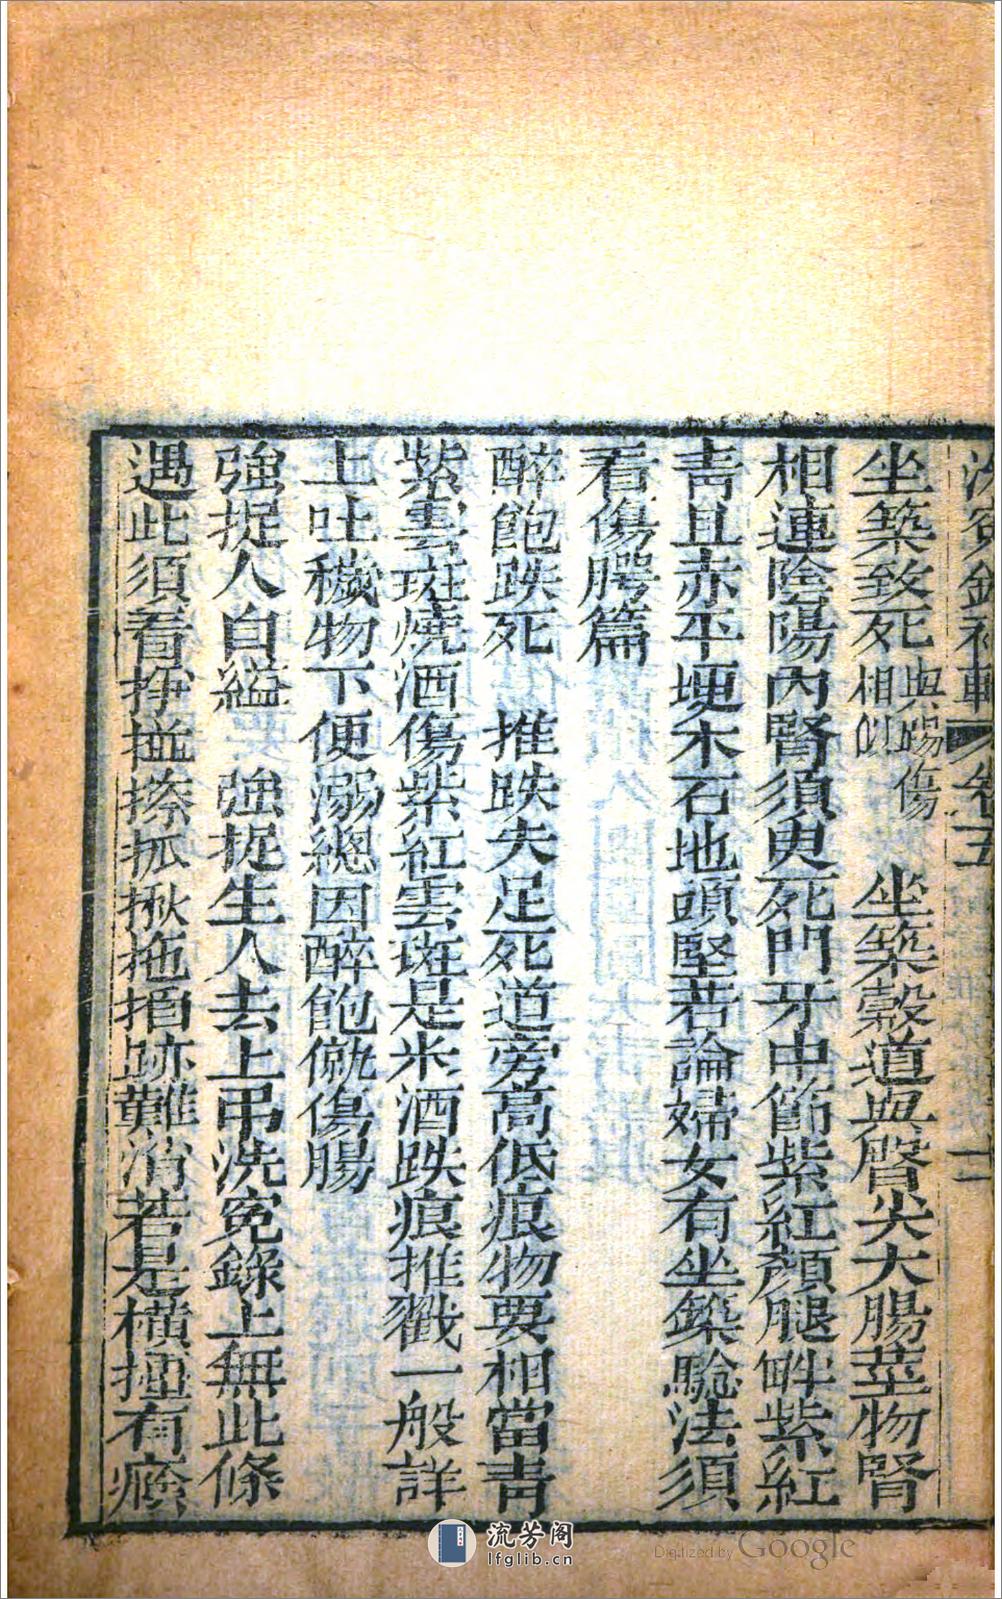 洗冤錄補輯 卷五 十二
坐築致死 與踢傷相似 坐築穀道與臀尖大腸莖物腎
相連陰陽內腎須臾死門牙中節紫紅顏腿畔紫紅
青且赤平埂木石地頭堅若論婦女有坐築驗法須
看傷腭篇
醉飽跌死 推跌失足死道旁高低痕物要相當青
紫雲斑燒酒傷紫紅雲斑是米酒跌痕推戳一般詳
上吐穢物下便溺總因醉飽僦傷腸
強捉人自縊 強捉生人去上吊洗冤錄上無此條
遇此須看掙搓擦抓揪拖揢跡難消若是橫捶有瘢
流芳阁
lfglib.cn
Digitized by Google